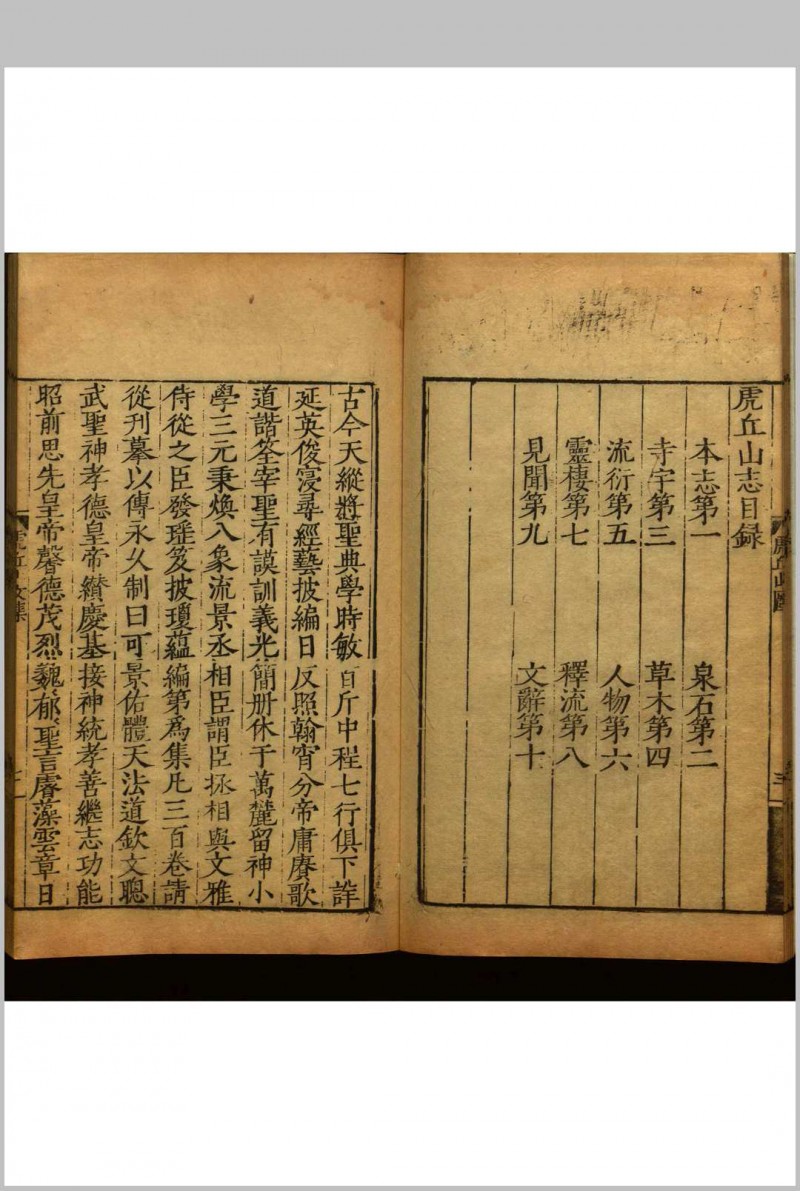 虎丘山志目録
本志第一 泉石第二
寺宇第三 草木第四
流衍第五 人物第六
靈棲第七 釋流第八
見聞第九 文辭第十
古今天縱將聖典學時敏百斤中程七行俱下詳
延英俊寖尋經藝披編日反照翰宵分帝庸賡歌
道諧筌宰聖有謨訓義光簡册休于萬麓留神小
學三元秉煥八象流景丞相臣謂臣拯相與文雅
侍從之臣發瑤笈披瓊蘊編第爲集凡三百卷請
從刋摹以傳永久制曰可景佑體天法道欽文聰
武聖神孝德皇帝纘慶基接神統孝善繼志功能
昭前思先皇帝馨德茂烈巍郁聖言睿藻雲章日